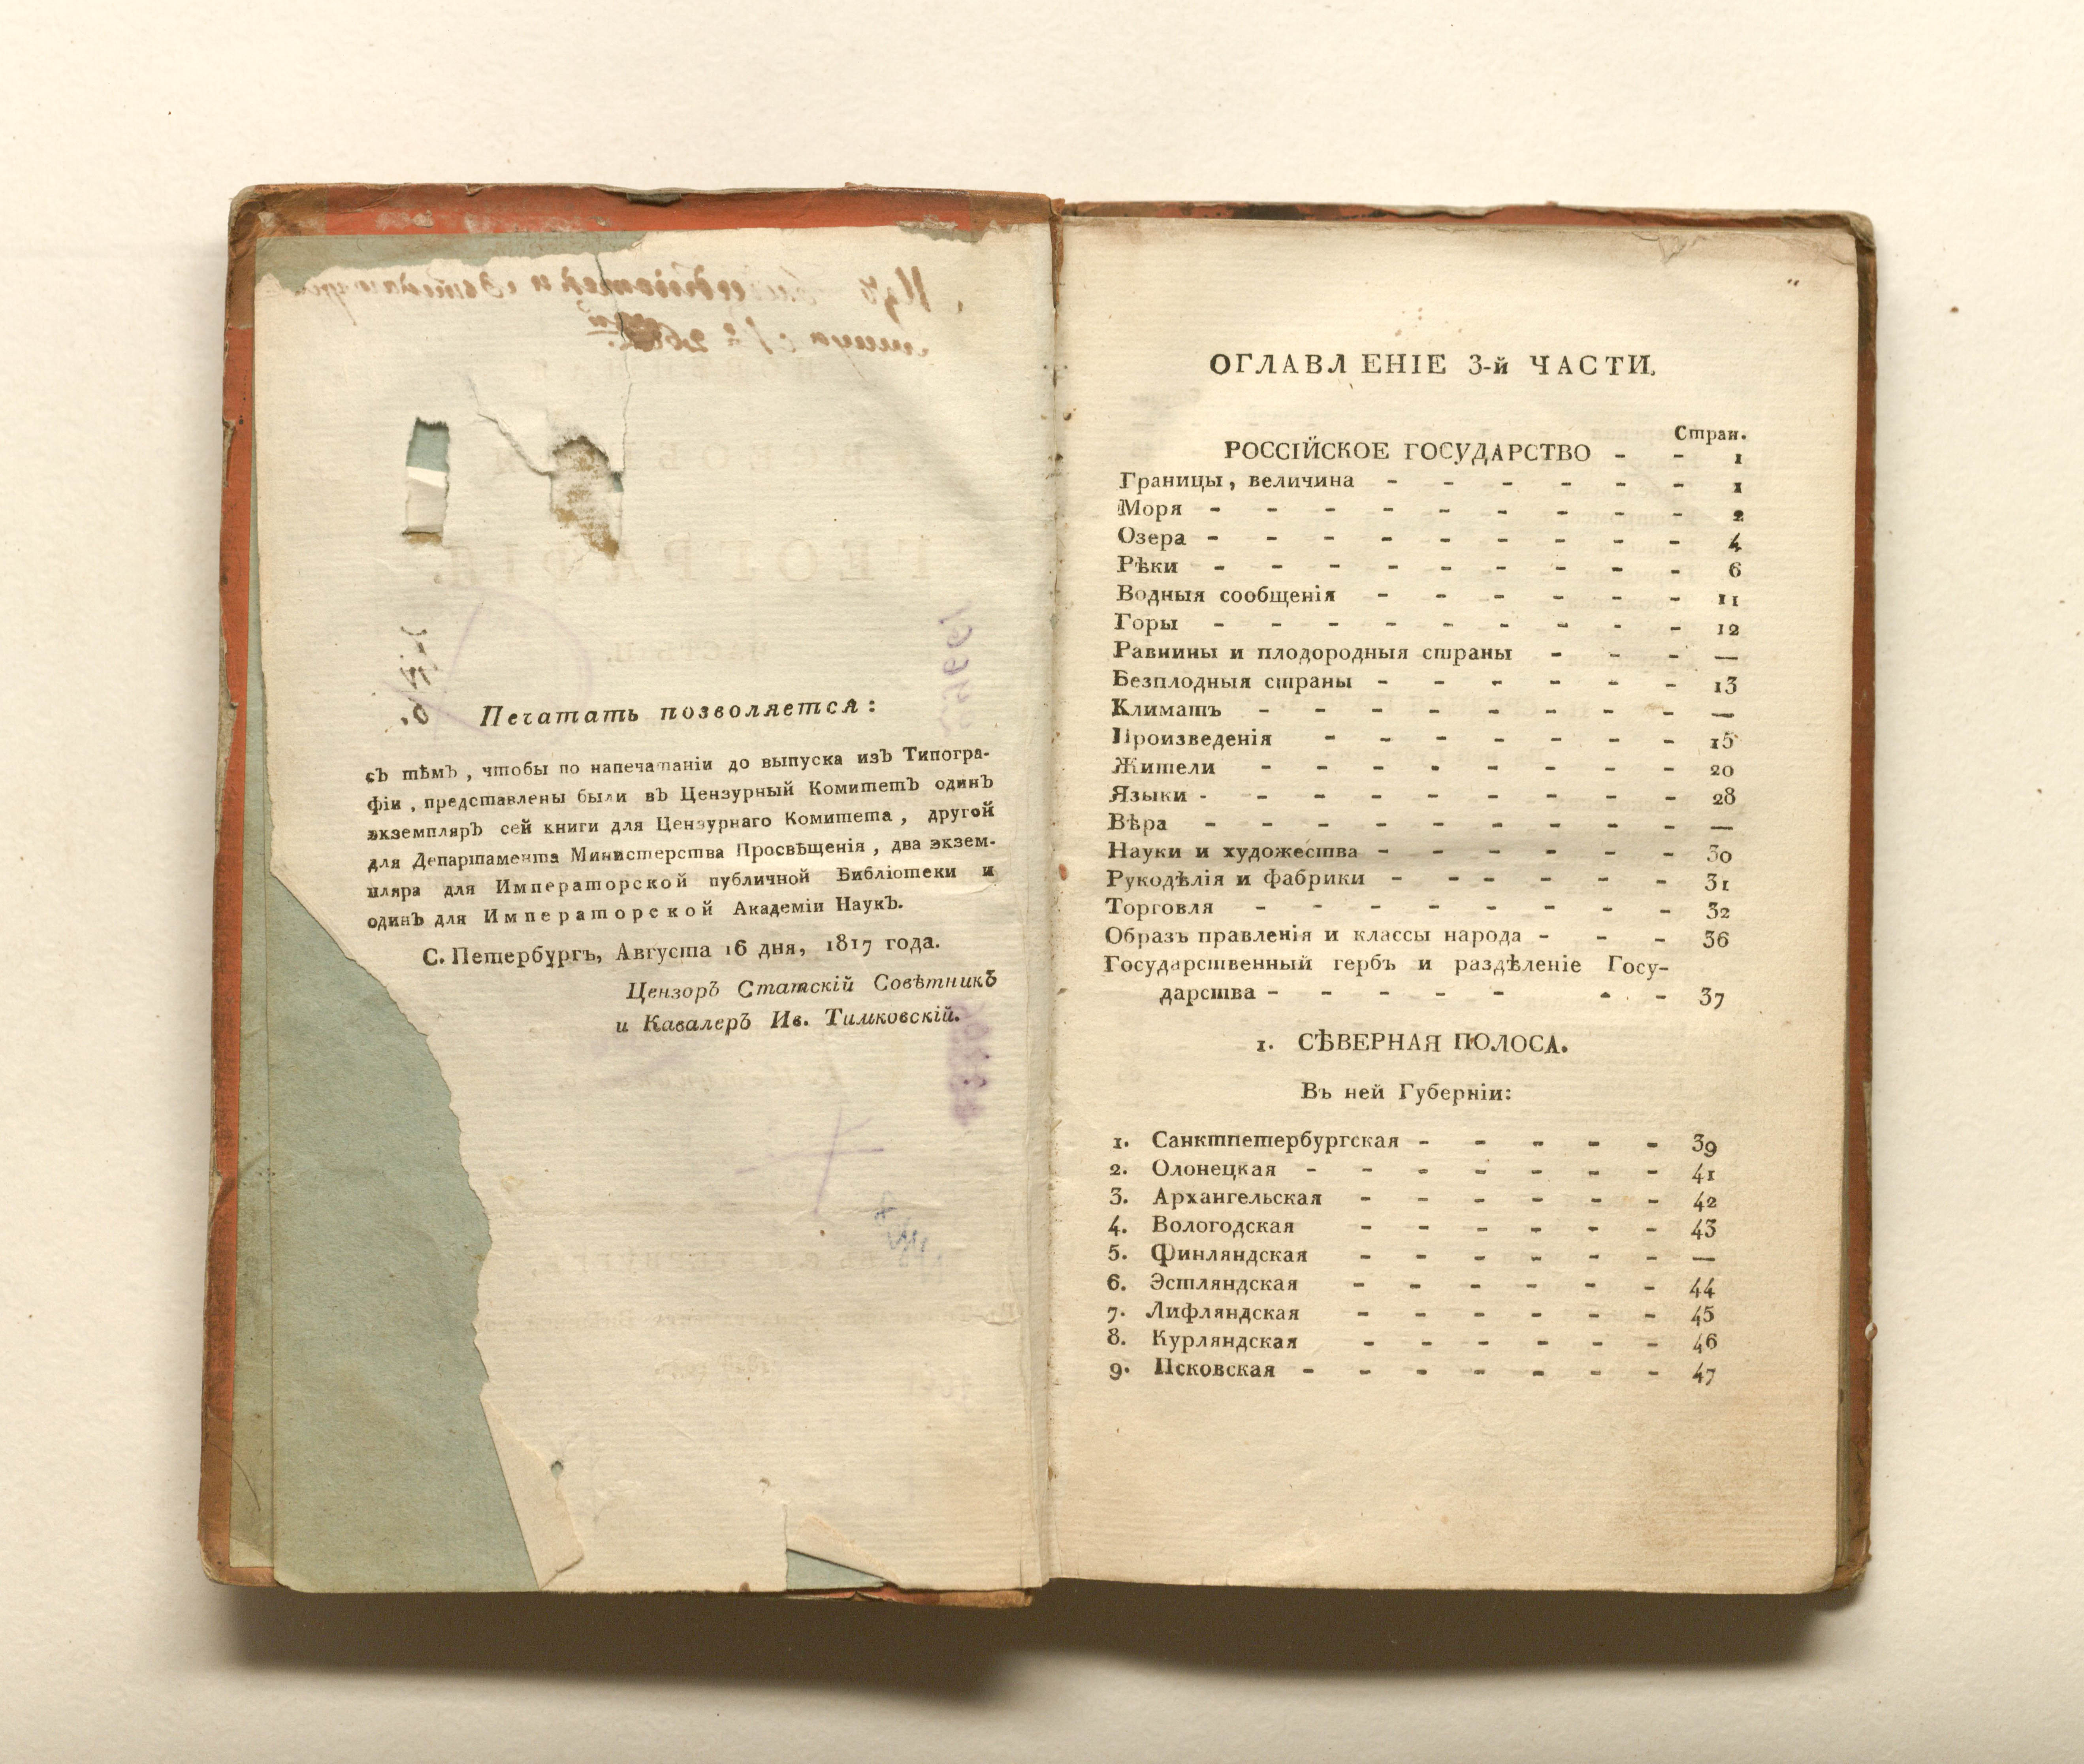 Печатать позволяется:
съ тѣмъ, чтобы по напечатаніи до выпуска изъ Типогра-
фіи, представлены были въ Цензурный Комитетъ одинъ
экземпляръ сей книги для Цензурнаго Комитета, другой
для Департамента Министерства Просвѣщенія, два экзем-
пляра для Императорской публичной Библіотеки и
одинъ для Императорской Академіи Наукъ.
С. Петербургъ, Августа 16 дня, 1817 года.
Цензоръ Статскій Совѣтникъ
и Кавалеръ Ив. Тимковскій.
ОГЛАВЛЕНІЕ 3-й ЧАСТИ.
Стран.
РОССІЙСКОЕ ГОСУДАРСТВО - - 1
Границы, величина - - - - - - 1
Моря - - - - - - - - - 2
Озера - - - - - - - - - 4
Рѣки - - - - - - - - - 6
Водныя сообщенія - - - - - - 11
Горы - - - - - - - - - 12
Равнины и плодородныя страны - - - —
Безплодныя страны - - - - - - 13
Климатъ - - - - - - - - —
Произведенія - - - - - - - 15
Жители - - - - - - - - 20
Языки - - - - - - - - - 28
Вѣра - - - - - - - - - —
Науки и художества - - - - - - 30
Рукодѣлія и фабрики - - - - - - 31
Торговля - - - - - - - - 32
Образъ правленія и классы народа - - - 36
Государственный гербъ и раздѣленіе Госу-
дарства - - - - - - - 37
1. СѢВЕРНАЯ ПОЛОСА.
Въ ней Губерніи:
1. Санктпетербургская - - - - - 39
2. Олонецкая - - - - - - - 41
3. Архангельская - - - - - - 42
4. Вологодская - - - - - - 43
5. Финляндская - - - - - - —
6. Эстляндская - - - - - - 44
7. Лифляндская - - - - - - 45
8. Курляндская - - - - - - 46
9. Псковская - - - - - - - 47